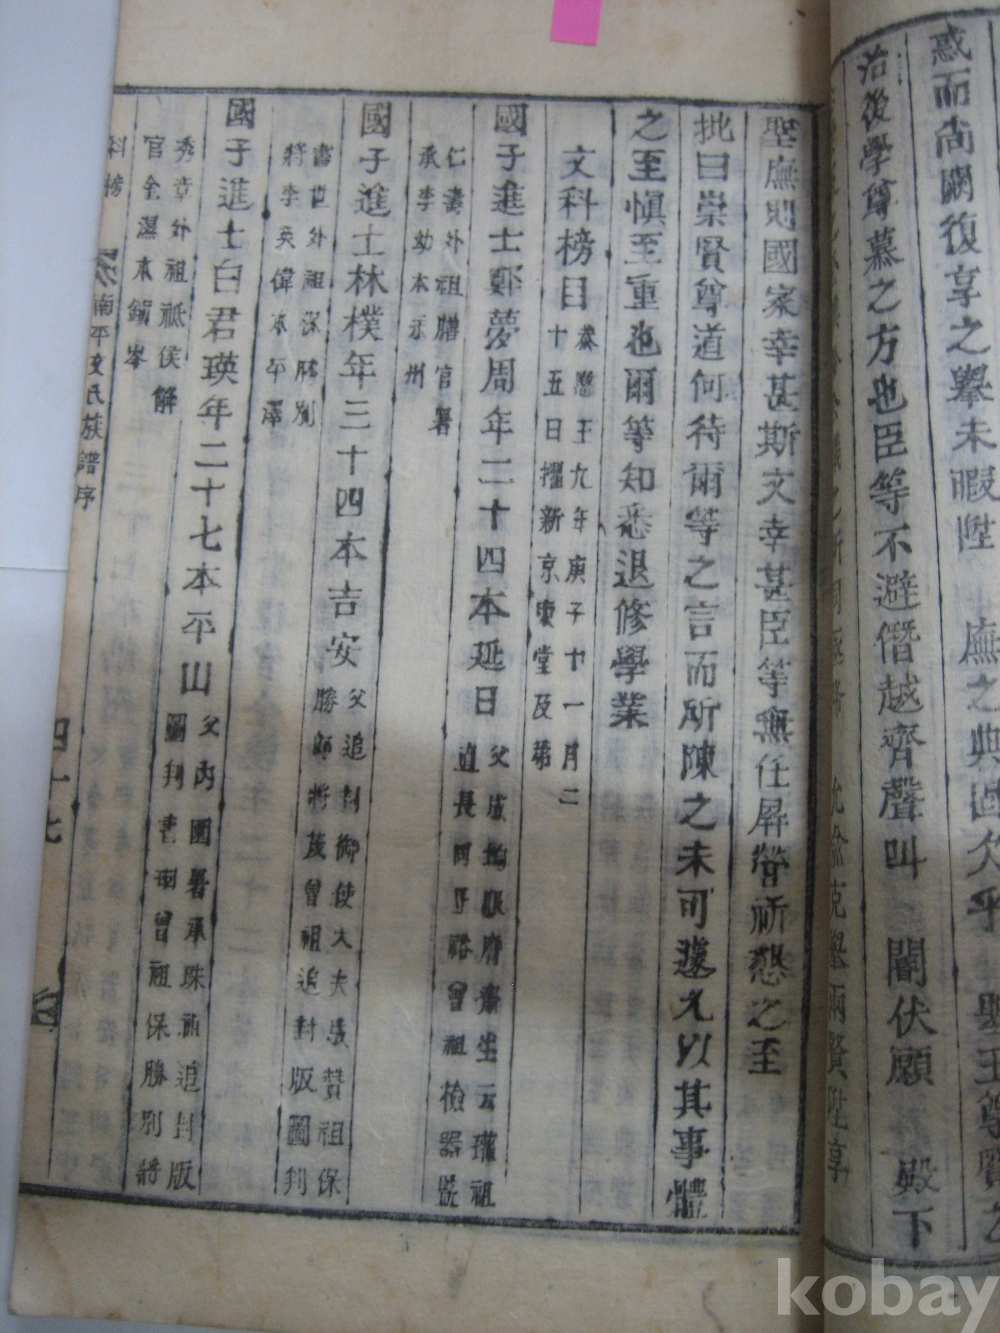 惑而尚闕復享之擧未暇陞 廡之典固欠乎 聖王尊賢之
治後學尊慕之方也臣等不避僭越齊聲叫 閽伏願 殿下
聖廡則國家幸甚斯文幸甚臣等無任屛營祈懇之至
批曰崇賢尊道何待爾等之言而所陳之未可遽允以其事體
之至愼至重也爾等知悉退修學業
文科榜目 恭愍王九年庚子十一月二
十五日擢新京東堂及第
國子進士鄭夢周年二十四本延日 父成均服膺齋生云瓘祖
直長同正裕曾祖檢器監
仁壽外祖膳官署
承李幼本永州
國子進士林樸年三十四本吉安 父追封御使大夫 贊祖保
勝郞將茂曾祖追封版圖判
書世外祖保勝別
將李矣偉本平澤
國子進士白君瑛年二十七本平山 父內園署承珠祖追封版
圖判書 曾祖保勝別將
秀章外祖祗侯解
官全濕本鎭岑
科榜 南平文氏族譜序 四十七